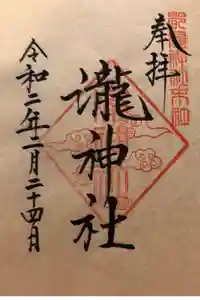 奉拝
瀧神社
令和二年一月二十四日